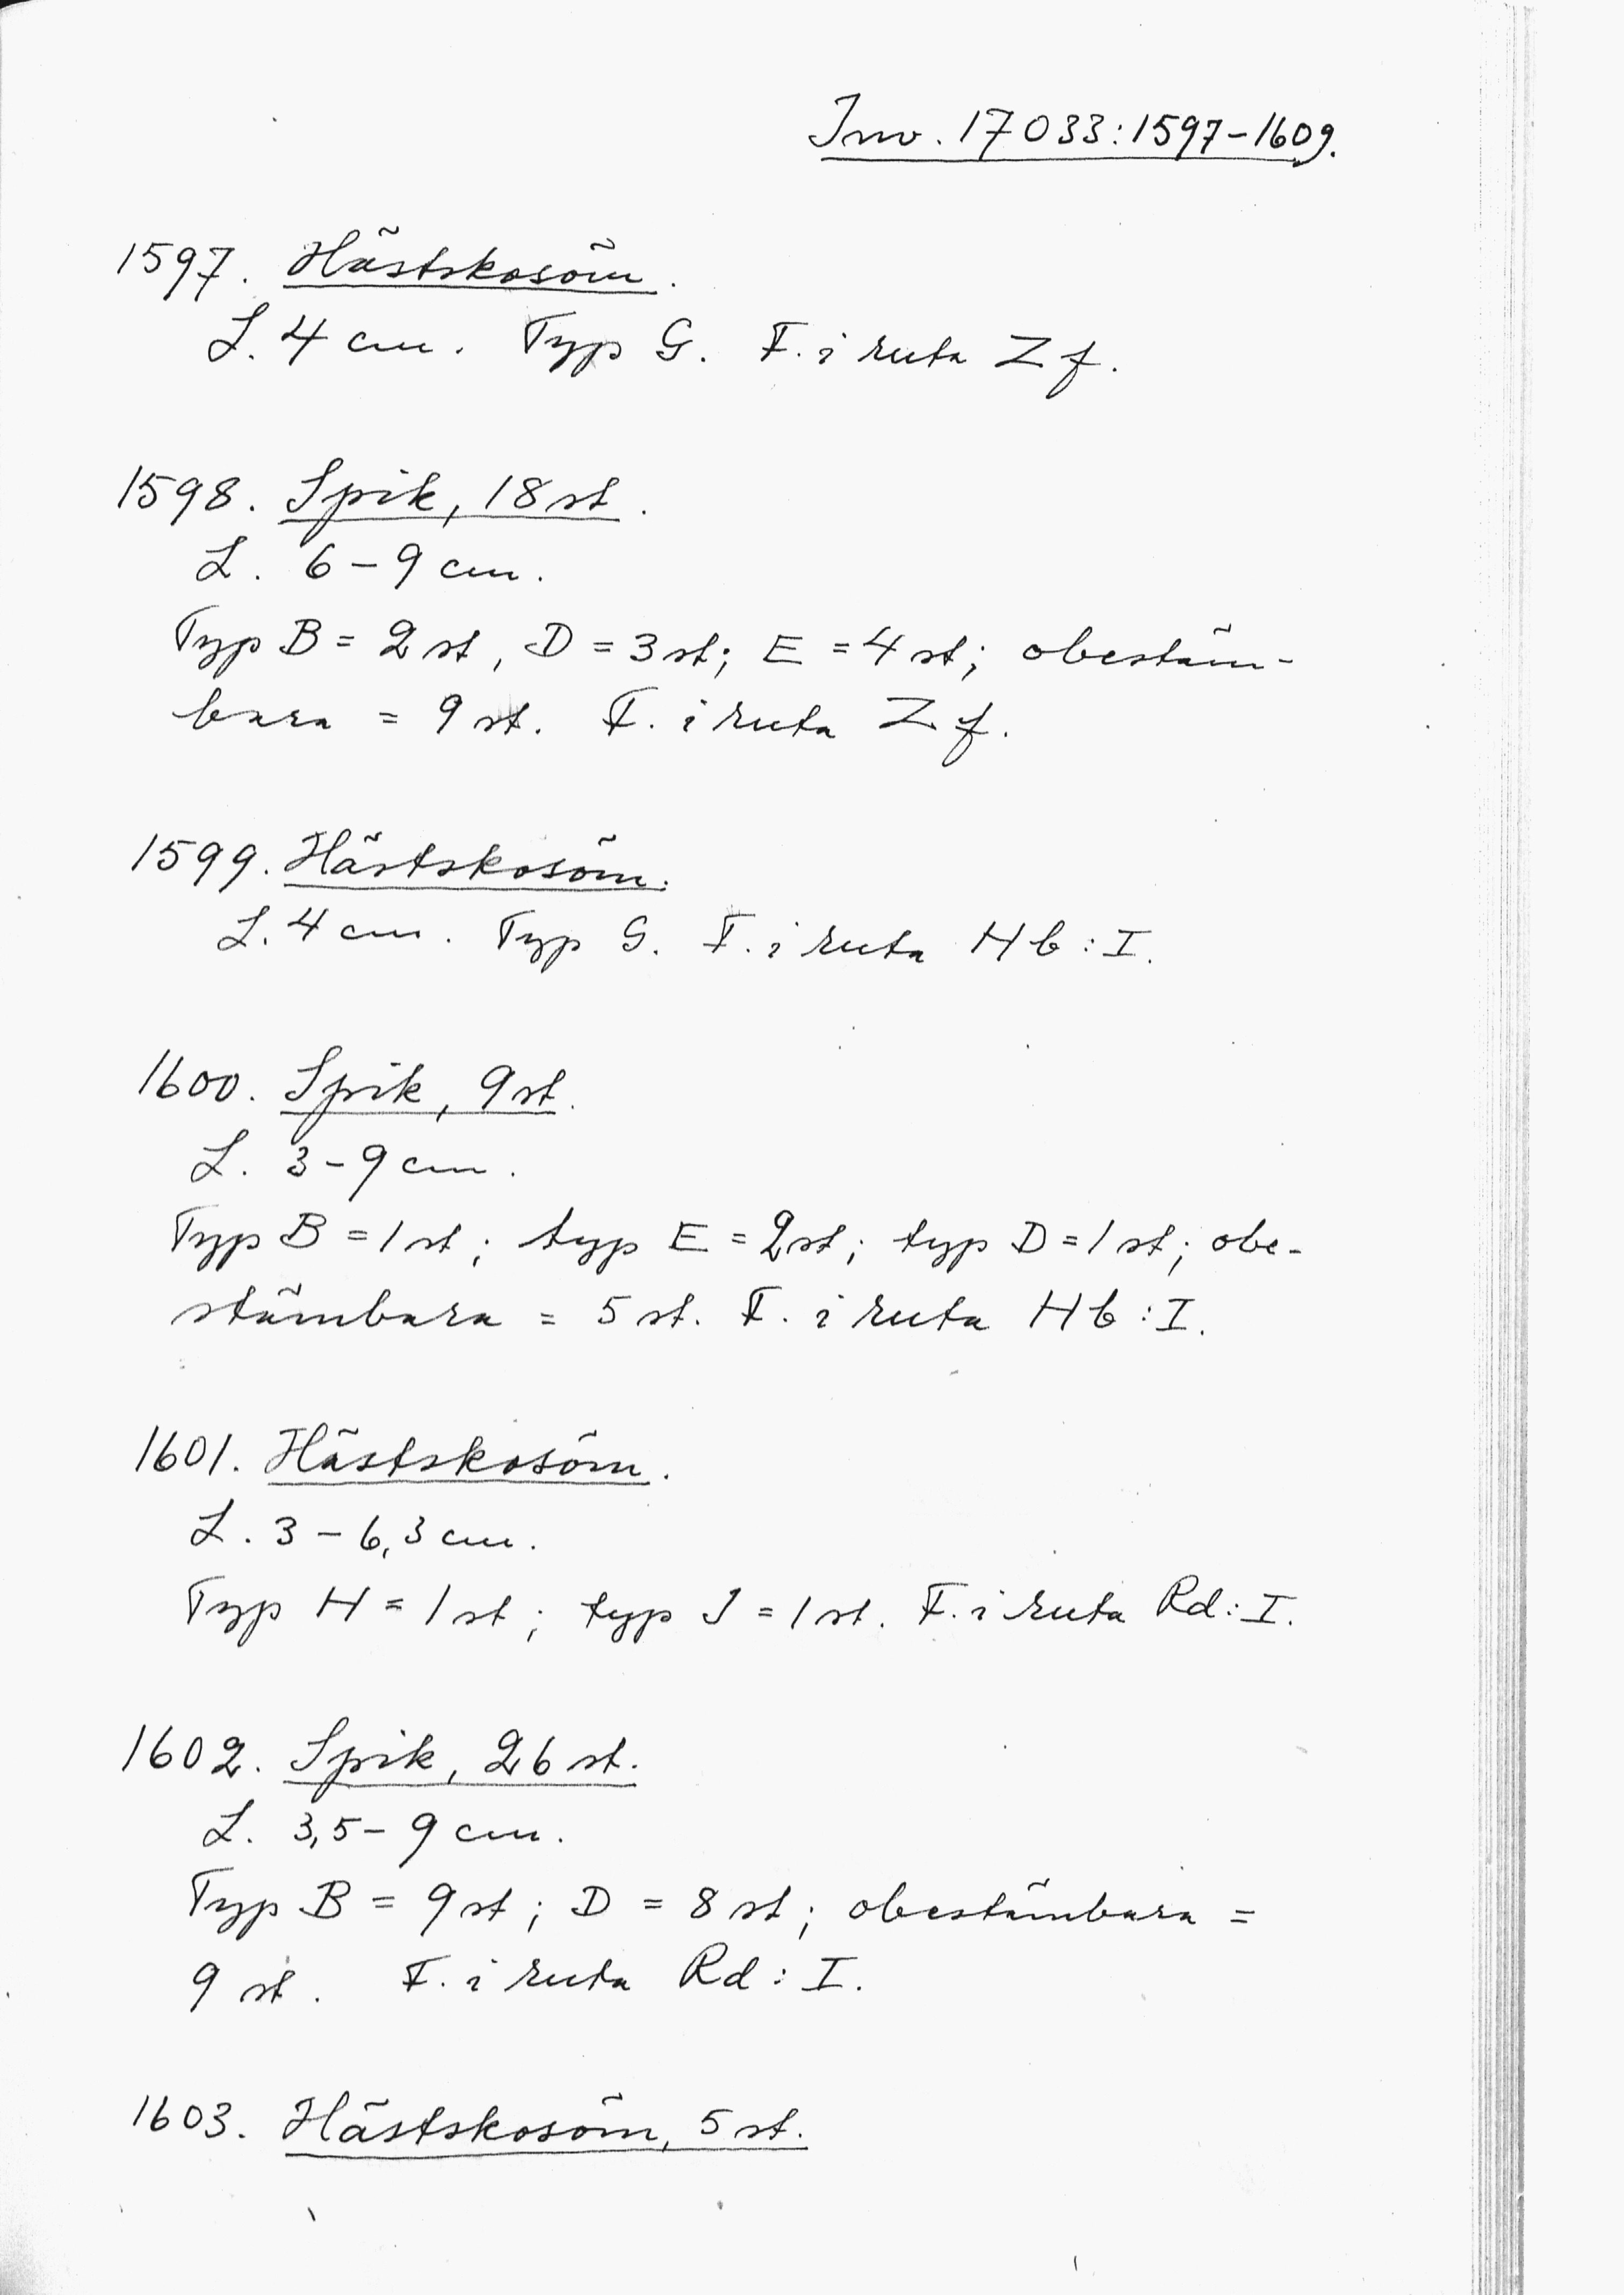 Inv. 17033:1597-1609.
1597. Hästskosöm.
L. 4 cm. Typ G. F. i ruta Zf.
1598. Spik, 18 st.
L. 6-9 cm.
Typ B = 2 st, D = 3 st; E = 4 st; obestäm-
bara = 9 st. F. i ruta Zf.
1599. Hästskosöm.
L. 4 cm. Typ G. F. i ruta Hb:I.
1600. Spik, 9 st.
L. 3-9 cm.
Typ B = 1 st; typ E = 2 st; typ D = 1 st; obe-
stämbara = 5 st. F. i ruta Hb:I.
1601. Hästskosöm.
L. 3-6,3 cm.
Typ H = 1 st; typ J = 1 st. F. i ruta Rd:I.
1602. Spik, 26 st.
L. 3,5-9 cm.
Typ B = 9 st; D = 8 st; obestämbara =
9 st. F. i ruta Rd:I.
1603. Hästskosöm, 5 st.